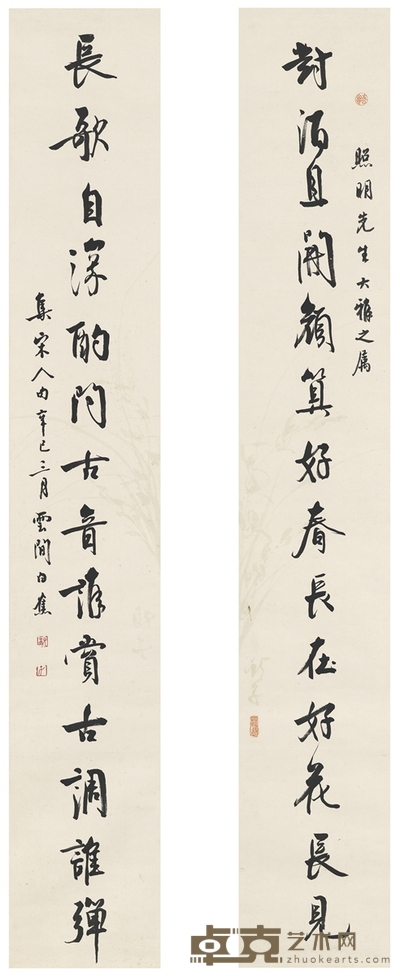 對酒且開顏算好春長在好花長見
照明先生大雅之屬
長歌自深酌問古音誰賞古調誰彈
集宋人句辛巳三月雲間白蕉
卓克艺术网
zhuokearts.com